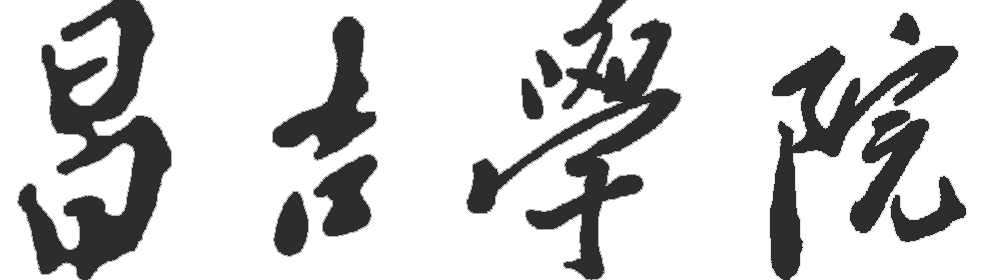 昌吉學院